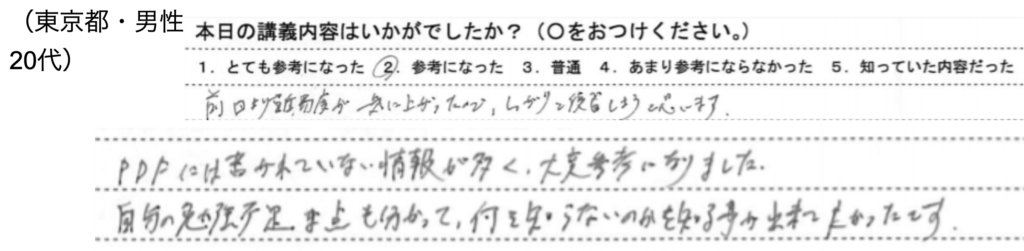 （東京都・男性
20代）
本日の講義内容はいかがでしたか？（○をおつけください。）
1．とても参考になった　2．参考になった　3．普通　4．あまり参考にならなかった　5．知っていた内容だった
前日より難易度が一気に上がったので，しっかりと復習しようと思います．
PDFには書かれていない情報が多く，大変参考になりました．
自分の勉強不足な点も分かって，何を知らないのかを知る事が出来てよかったです．